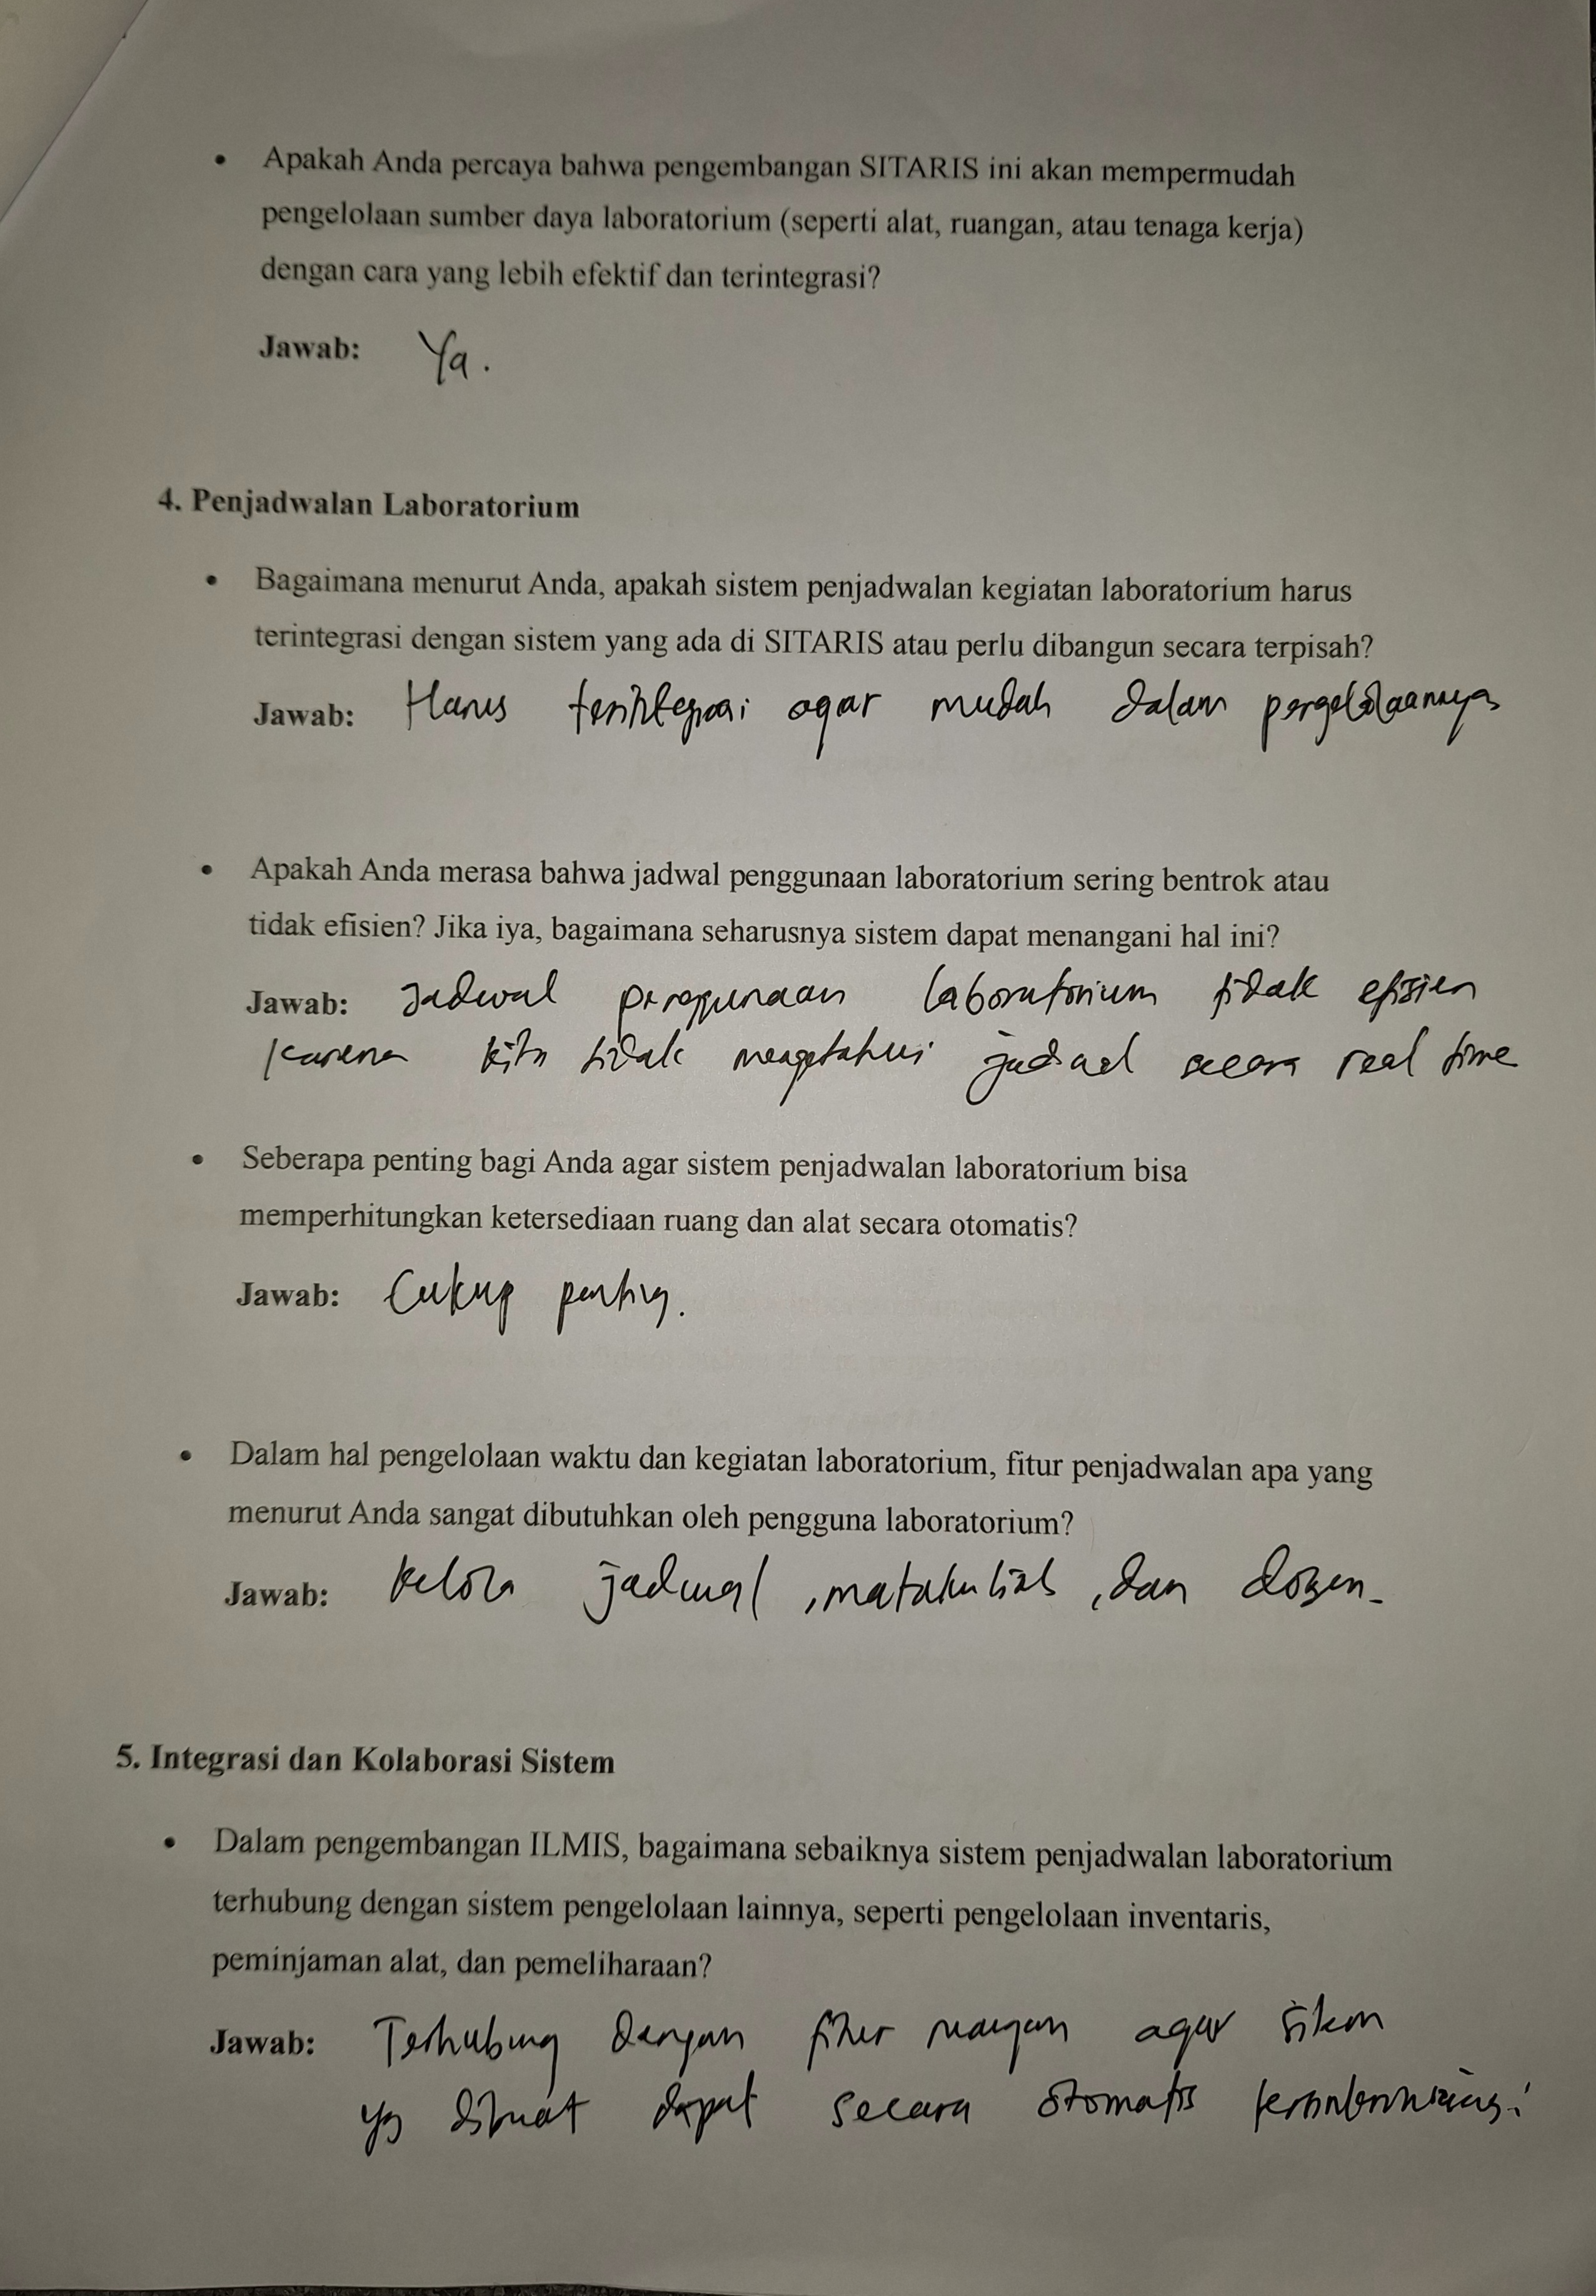 • Apakah Anda percaya bahwa pengembangan SITARIS ini akan mempermudah
pengelolaan sumber daya laboratorium (seperti alat, ruangan, atau tenaga kerja)
dengan cara yang lebih efektif dan terintegrasi?
Jawab: Ya.
4. Penjadwalan Laboratorium
• Bagaimana menurut Anda, apakah sistem penjadwalan kegiatan laboratorium harus
terintegrasi dengan sistem yang ada di SITARIS atau perlu dibangun secara terpisah?
Jawab: Harus terintegrasi agar mudah dalam pengelolaannya
• Apakah Anda merasa bahwa jadwal penggunaan laboratorium sering bentrok atau
tidak efisien? Jika iya, bagaimana seharusnya sistem dapat menangani hal ini?
Jawab: Jadwal penggunaan laboratorium tidak efisien
karena kita tidak mengetahui jadwal secara real time
• Seberapa penting bagi Anda agar sistem penjadwalan laboratorium bisa
memperhitungkan ketersediaan ruang dan alat secara otomatis?
Jawab: Cukup penting.
• Dalam hal pengelolaan waktu dan kegiatan laboratorium, fitur penjadwalan apa yang
menurut Anda sangat dibutuhkan oleh pengguna laboratorium?
Jawab: kelola jadwal, matakuliah, dan dosen.
5. Integrasi dan Kolaborasi Sistem
• Dalam pengembangan ILMIS, bagaimana sebaiknya sistem penjadwalan laboratorium
terhubung dengan sistem pengelolaan lainnya, seperti pengelolaan inventaris,
peminjaman alat, dan pemeliharaan?
Jawab: Terhubung dengan fitur ruangan agar
yg dibuat dapat secara otomatis